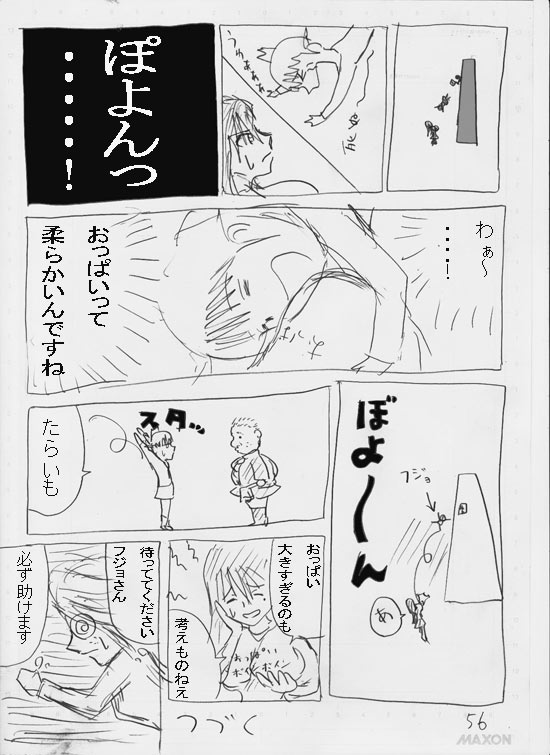 うわぁぁぁ
ぽよんっ
・・・・・・!
わぁ~
・・・・!
おっぱいって
柔らかいんですね
ぼよ~ん
フジョ
あ
スタッ
たらいも
おっぱい
大きすぎるのも
考えものねえ
おっぱい
ボイン
ボイン
待っててください
フジョさん
必ず助けます
つづく
56
MAXON